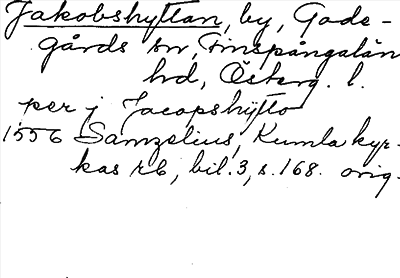 Jakobshyttan, by, Gode-
gårds sn, Finspångalän
hd, Österg. l.
per j Jacopshÿtto
1556 Samzelius, Kumla kyr-
kas rb, bil. 3, s. 168. orig.